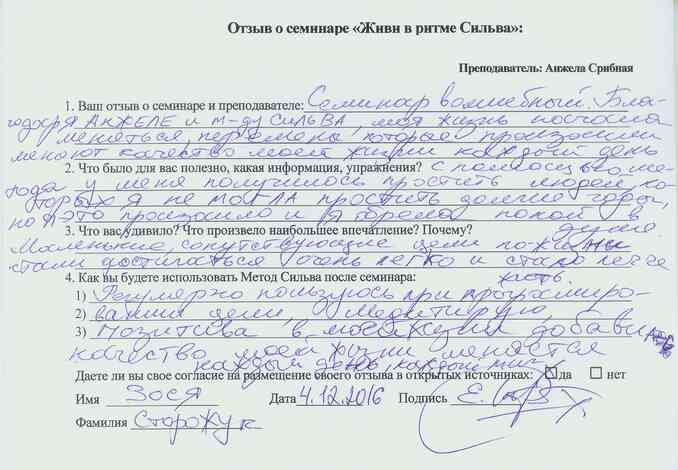 Отзыв о семинаре «Живи в ритме Сильва»:
Преподаватель: Анжела Срибная
1. Ваш отзыв о семинаре и преподавателе: Семинар волшебный. Бла-
годаря АНЖЕЛЕ и м-ду СИЛЬВА, моя жизнь постояла
меняться, перемены, которые произошли
меняют качество моей жизни каждый день
2. Что было для вас полезно, какая информация, упражнения? С помощью ме-
тода у меня получилось простить людей, ко-
торых я не могла простить долгие годы,
но это произошло и я обрела покой в
душе.
3. Что вас удивило? Что произвело наибольшее впечатление? Почему?
Маленькие, сопутствующие цели по жизни
стали достигаться очень легко и стало легче
жить.
4. Как вы будете использовать Метод Сильва после семинара:
1) Регулярно пользуюсь при программиро-
2) вании цели, медитирую,
3) Позитива в моей жизни добавилось
качество моей жизни меняется
каждый день, каждый миг
Даете ли вы свое согласие на размещение своего отзыва в открытых источниках: да нет
Имя Зося Дата 4.12.2016 Подпись
Фамилия Сторожук